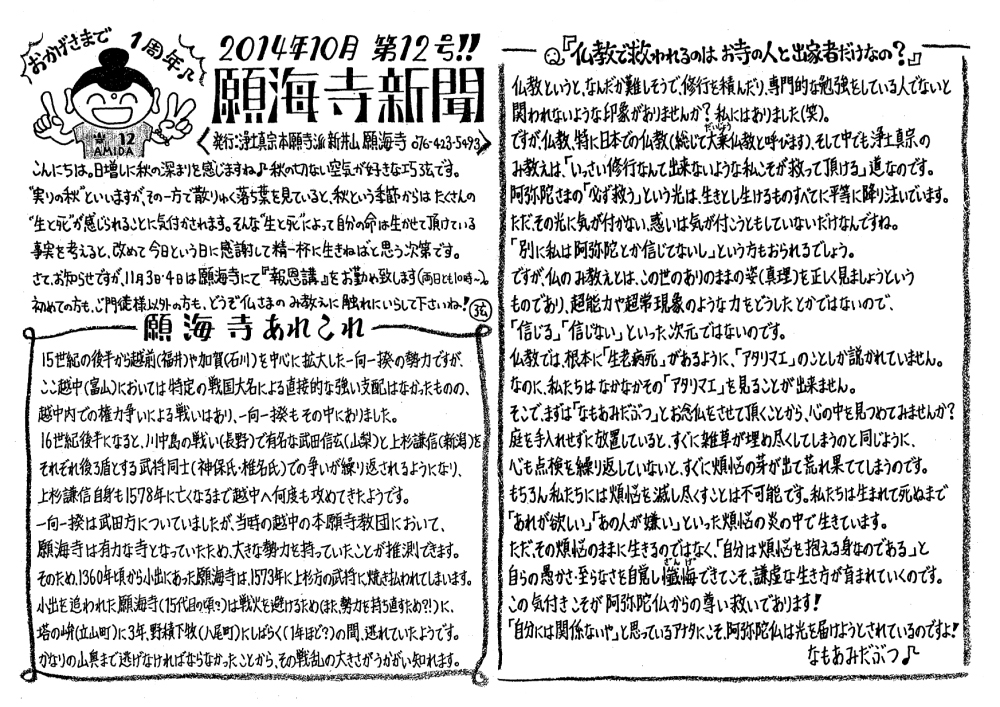 おかげさまで1周年♪
12
AMIDA
2014年10月 第12号!!
願海寺新聞
発行:浄土真宗本願寺派 新井山 願海寺 076-423-5493
こんにちは。日増しに秋の深まりを感じますね♪秋の切ない空気が好きな巧弦です。
"実りの秋"といいますが、その一方で散りゆく落ち葉を見ていると、秋という季節からは たくさんの
"生と死"が感じられることに気付かされます。そんな"生と死"によって自分の命は生かせて頂けている
事実を考えると、改めて今日という日に感謝して精一杯に生きねばと思う次第です。
さて、お知らせですが、11月3日・4日は願海寺にて『報恩講』をお勤め致します(両日とも10時〜)。
初めての方も、ご門徒様以外の方も、どうぞ仏さまのみ教えに触れにいらして下さいね! 弦
願海寺あれこれ
15世紀の後半から越前(福井)や加賀(石川)を中心に拡大した一向一揆の勢力ですが、
ここ越中(富山)においては特定の戦国大名による直接的な強い支配はなかったものの、
越中内での権力争いによる戦いはあり、一向一揆もその中にありました。
16世紀後半になると、川中島の戦い(長野)で有名な武田信玄(山梨)と上杉謙信(新潟)を
それぞれ後ろ盾とする武将同士(神保氏・椎名氏)での争いが繰り返されるようになり、
上杉謙信自身も1578年に亡くなるまで越中へ何度も攻めてきたようです。
一向一揆は武田方についていましたが、当時の越中の本願寺教団において、
願海寺は有力な寺となっていたため、大きな勢力を持っていたことが推測できます。
そのため、1360年頃から小出にあった願海寺は、1573年に上杉方の武将に焼き払われてしまいます。
小出を追われた願海寺(15代目の頃?)は戦火を避けるため(また、勢力を持ち直すため?!)に、
塔の岬(立山町)に3年、野積下牧(八尾町)にしばらく(1年ほど?)の間、逃れていたようです。
かなりの山奥まで逃げなければならなかったことから、その戦乱の大きさがうかがい知れます。
Q.『仏教で救われるのは、お寺の人と出家者だけなの?』
仏教というと、なんだか難しそうで、修行を積んだり、専門的な勉強をしている人でないと
関われないような印象がありませんか? 私にはありました(笑)。
ですが、仏教、特に日本での仏教(総じて大乗仏教と呼びます)、そして中でも浄土真宗の
み教えは、「いっさい修行なんて出来ないような私こそが救って頂ける」道なのです。
阿弥陀さまの「必ず救う」という光は、生きとし生けるものすべてに平等に降り注いでいます。
ただ、その光に気が付かない、或いは気が付こうともしていないだけなんですね。
「別に私は阿弥陀とか信じてないし」という方もおられるでしょう。
ですが、仏のみ教えとは、この世のありのままの姿(真理)を正しく見ましょうという
ものであり、超能力や超常現象のような力をどうしたとかではないので、
「信じる」「信じない」といった次元ではないのです。
仏教では、根本に「生老病死」があるように、「アタリマエ」のことしか説かれていません。
なのに、私たちはなかなかその「アタリマエ」を見ることが出来ません。
そこで、まずは「なもあみだぶつ」とお念仏をさせて頂くことから、心の中を見つめてみませんか?
庭を手入れせずに放置していると、すぐに雑草が埋め尽くしてしまうのと同じように、
心も点検を繰り返していないと、すぐに煩悩の芽が出て荒れ果ててしまうのです。
もちろん私たちには煩悩を滅し尽くすことは不可能です。私たちは生まれて死ぬまで
「あれが欲しい」「あの人が嫌い」といった煩悩の炎の中で生きています。
ただ、その煩悩のままに生きるのではなく、「自分は煩悩を抱える身なのである」と
自らの愚かさ・至らなさを自覚し懺悔できてこそ、謙虚な生き方が育まれていくのです。
この気付きこそが阿弥陀仏からの尊い救いであります!
「自分には関係ないや」と思っているアナタにこそ、阿弥陀仏は光を届けようとされているのですよ!
なもあみだぶつ♪